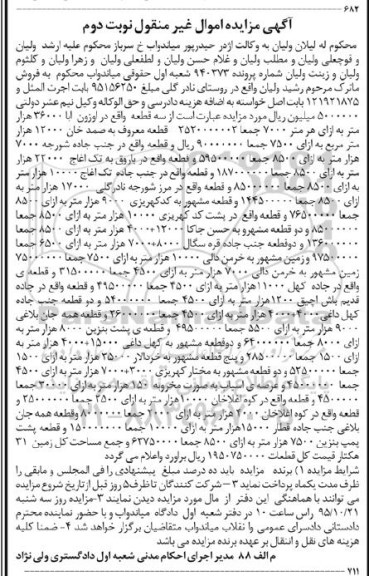 ۶۸۲
آگهی مزایده اموال غیر منقول نوبت دوم
محکوم له لیلان ولیان به وکالت اژدر حیدرپور میلدواب خ سرباز محکوم علیه ارشد ولیان
و قوچعلی ولیان و مطلب ولیان و غلام حسن ولیان و لطفعلی ولیان و زهرا ولیان و کلثوم
ولیان و زینت ولیان شماره پرونده ۹۴۰۳۷۳ شعبه اول حقوقی میاندواب محکوم به فروش
ماترک مرحوم رشید ولیان واقع در روستای نادر گلی مبلغ ۹۵۱۵۶۲۵۰ بابت اجرت المثل و
۱۲۱۹۲۱۸۷۵ بابت اصل خواسته به اضافه هزینه دادرسی و حق الوکاله وکیل نیم عشر دولتی
۵۰۰۰۰۰۰ میلیون ریال مورد مزایده عبارت است از سه قطعه واقع در اوزون آبا ۳۶۰۰۰ هزار
متر به ازای هر متر ۷۰۰۰ جمعا ۲۵۲۰۰۰۰۰۰۲ قطعه معروف به صمد خان ۱۲۰۰۰ هزار
متر مربع به ازای ۷۵۰۰ جمعا ۹۰۰۰۰۰۰۰ ریال و قطعه واقع در جنب جاده شورجه ۷۰۰۰
هزار متر به ازای ۸۵۰۰ جمعا ۵۹۵۰۰۰۰۰ و قطعه واقع در باروق به تک اغاج ۲۲۰۰۰ هزار
متر به ازای ۸۵۰۰ جمعا ۱۸۷۰۰۰۰۰۰ و قطعه واقع در جنب جاده تک اغاج ۱۰۰۰۰ هزار متر
به ازای ۸۵۰۰ جمعا ۸۵۰۰۰۰۰۰ و قطعه واقع در مرز شورجه نادرگلی ۱۷۰۰۰ هزار متر به
ازای ۸۵۰۰ جمعا ۱۴۴۵۰۰۰۰۰ و قطعه مشهور به کدکهریزی ۹۰۰۰ هزار متر به ازای ۸۵۰۰
جمعا ۷۶۵۰۰۰۰۰ و قطعه واقع در پشت کد کهریزی ۱۰۰۰۰ هزار متر به ازای ۸۵۰۰ جمعا
۸۵۰۰۰۰۰۰ و دو قطعه مشهرو به حسن جاکا ۴۰۰۰+۱۲۰۰۰ هزار متر به ازای ۸۵۰۰ جمعا
۱۳۶۰۰۰۰۰۰ و دوقطعه جنب جاده قره سگال ۷۰۰۰+۸۰۰۰ هزار متر به ازای ۶۵۰۰ جمعا
۹۷۵۰۰۰۰۰ و زمین مشهور به خرمن دالی ۱۰۰۰۰ هزار متر به ازای ۷۵۰۰ جمعا ۷۵۰۰۰۰۰۰
زمین مشهور به خرمن دالی ۷۰۰۰ هزار متر به ازای ۴۵۰۰ جمعا ۳۱۵۰۰۰۰۰ و قطعه ی
واقع در جاده کهل ۱۱۰۰۰ هزار متر به ازای ۴۵۰۰ جمعا ۴۹۵۰۰۰۰۰ و قطعه واقع در جاده
قدیم باش اچیق ۱۲۰۰۰ هزار متر به ازای ۴۵۰۰ جمعا ۵۴۰۰۰۰۰۰ و دو قطعه جنب جاده
کهل داغی
۹۰۰۰ هزار متر به ازای ۵۵۰۰ جمعا ۴۹۵۰۰۰۰۰ و قطعه ی پشت بنزین ۸۰۰۰ هزار متر به
ازای ۸۰۰۰ جمعا ۶۴۰۰۰۰۰۰ و دوقطعه مشهور به کهل داغی
جمعا ۵۲۵۰۰۰۰ و دو قطعه مشهور به مختار کهریزی
و قطعه واقع در کوه اغلاخان
قطعه واقع در کوه اغلاخان
باغلاغی جنب جاده قطار ۱۵۰۰۰ هزار متر به ازای
پمپ بنزین ۷۵۰۰ هزار متر به ازای ۸۵۰۰ جمعا ۶۳۷۵۰۰۰۰ و جمع مساحت کل زمین ۳۱
هکتار قیمت کل قطعات ۱۹۵۰۷۵۰۰۰۰ ریال براورد واعلام می گردد
شرایط مزایده ۱) برنده مزایده باید ده درصد مبلغ پیشنهادی را فی المجلس و مابقی را
ظرف مدت یکماه پرداخت نماید ۳–شرکت کنندگان تاظرف۵ روز قبل از تاریخ شروع مزایده
می توانند با هماهنگی این دفتر از مال مورد مزایده دیدن نمایند ۳-مزایده روز سه شنبه
۹۵/۱۰/۲۱ راس ساعت ۱۰ در دفتر شعبه اول دادگاه میاندواب و با حضور نماینده محترم
دادستانی دادسرای عمومی وا نقلاب میاندواب متقاضیان برگزار خواهد شد ۴- ضمنا کلیه
هزینه های نقل و انتقال بر عهده برنده مزایده می باشد
م الف ۸۸ مدیر اجرای احکام مدنی شعبه اول دادگستری ولی نژاد
۷۱۱